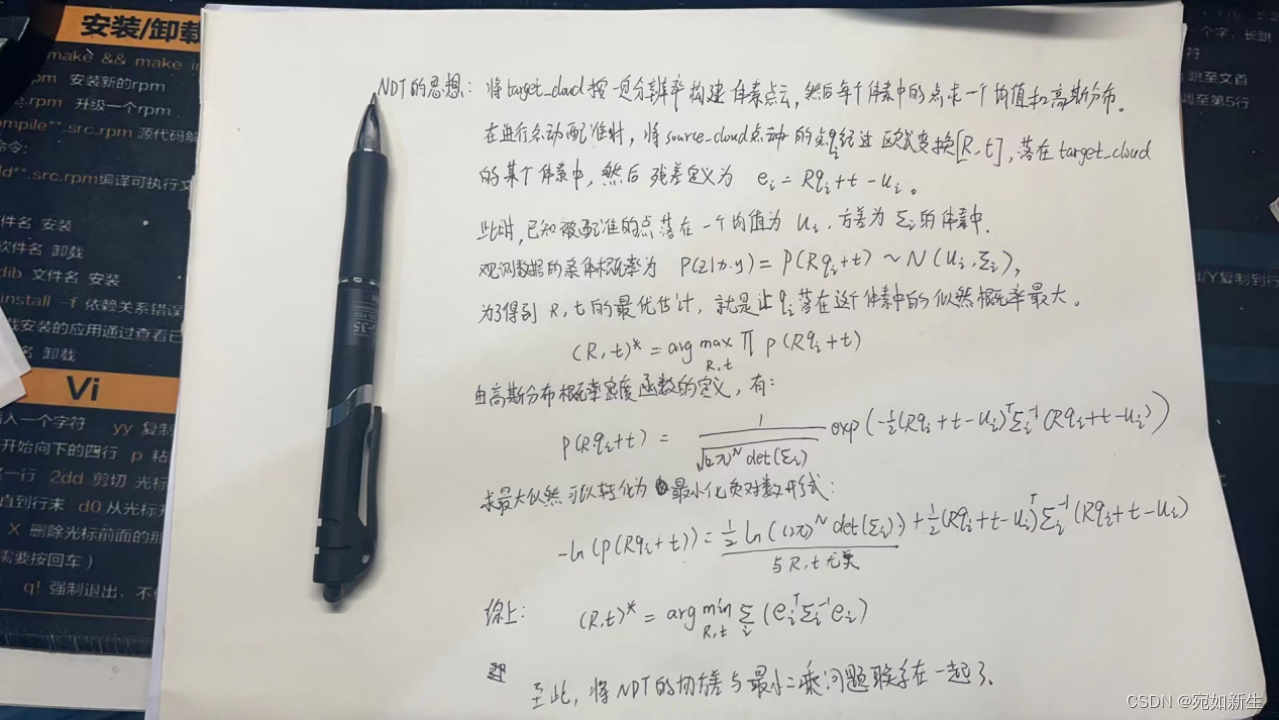 安装/卸载
make && make in
rpm 安装新的rpm
e.rpm 升级一个rpm
ompile**.src.rpm 源代码
命令:
ld**.src.rpm编译可执行文
件名 安装
软件名 卸载
dib 文件名 安装
install -f 依赖关系错误
载安装的应用通过查看已
名 卸载
Vi
插入一个字符 yy 复制
开始向下的四行 p 粘
一行 2dd 剪切 光标
直到行末 d0 从光标
X 删除光标前面的那
需要按回车）
q! 强制退出，不
个字，长跳
符
跳至文首
调至第5行
/Y复制到行
NDT的思想：将target_cloud按一定分辨率构建体素点云，然后每个体素中的点求一个均值和高斯分布。
在进行点动配准时，将source_cloud点动的点qᵢ经过欧式变换[R,t]，落在target_cloud
的某个体素中，然后残差定义为 eᵢ = Rqᵢ+t-uᵢ。
此时，已知被配准的点落在一个均值为 uᵢ，方差为 Σᵢ的体素中.
观测数据的条件概率为 P(z|x,y) = P(Rqᵢ+t) ~ N(uᵢ,Σᵢ),
为了得到 R,t的最优估计，就是让qᵢ落在这个体素中的似然概率最大。
(R,t)* = arg max_{R,t} Π p(Rqᵢ+t)
由高斯分布概率密度函数的定义，有：
P(Rqᵢ+t) = 1/√(2π)^N det(Σᵢ) exp(-½(Rqᵢ+t-uᵢ)ᵀΣᵢ⁻¹(Rqᵢ+t-uᵢ))
求最大似然可以转化为最小化负对数形式：
-ln(P(Rqᵢ+t)) = ½ln((2π)^N det(Σᵢ)) + ½(Rqᵢ+t-uᵢ)ᵀΣᵢ⁻¹(Rqᵢ+t-uᵢ)
与R,t无关
综上： (R,t)* = arg min_{R,t} Σᵢ (eᵢᵀΣᵢ⁻¹eᵢ)
至此，将NDT的协方差与最小二乘问题联系在一起了.
CSDN @宛如新生